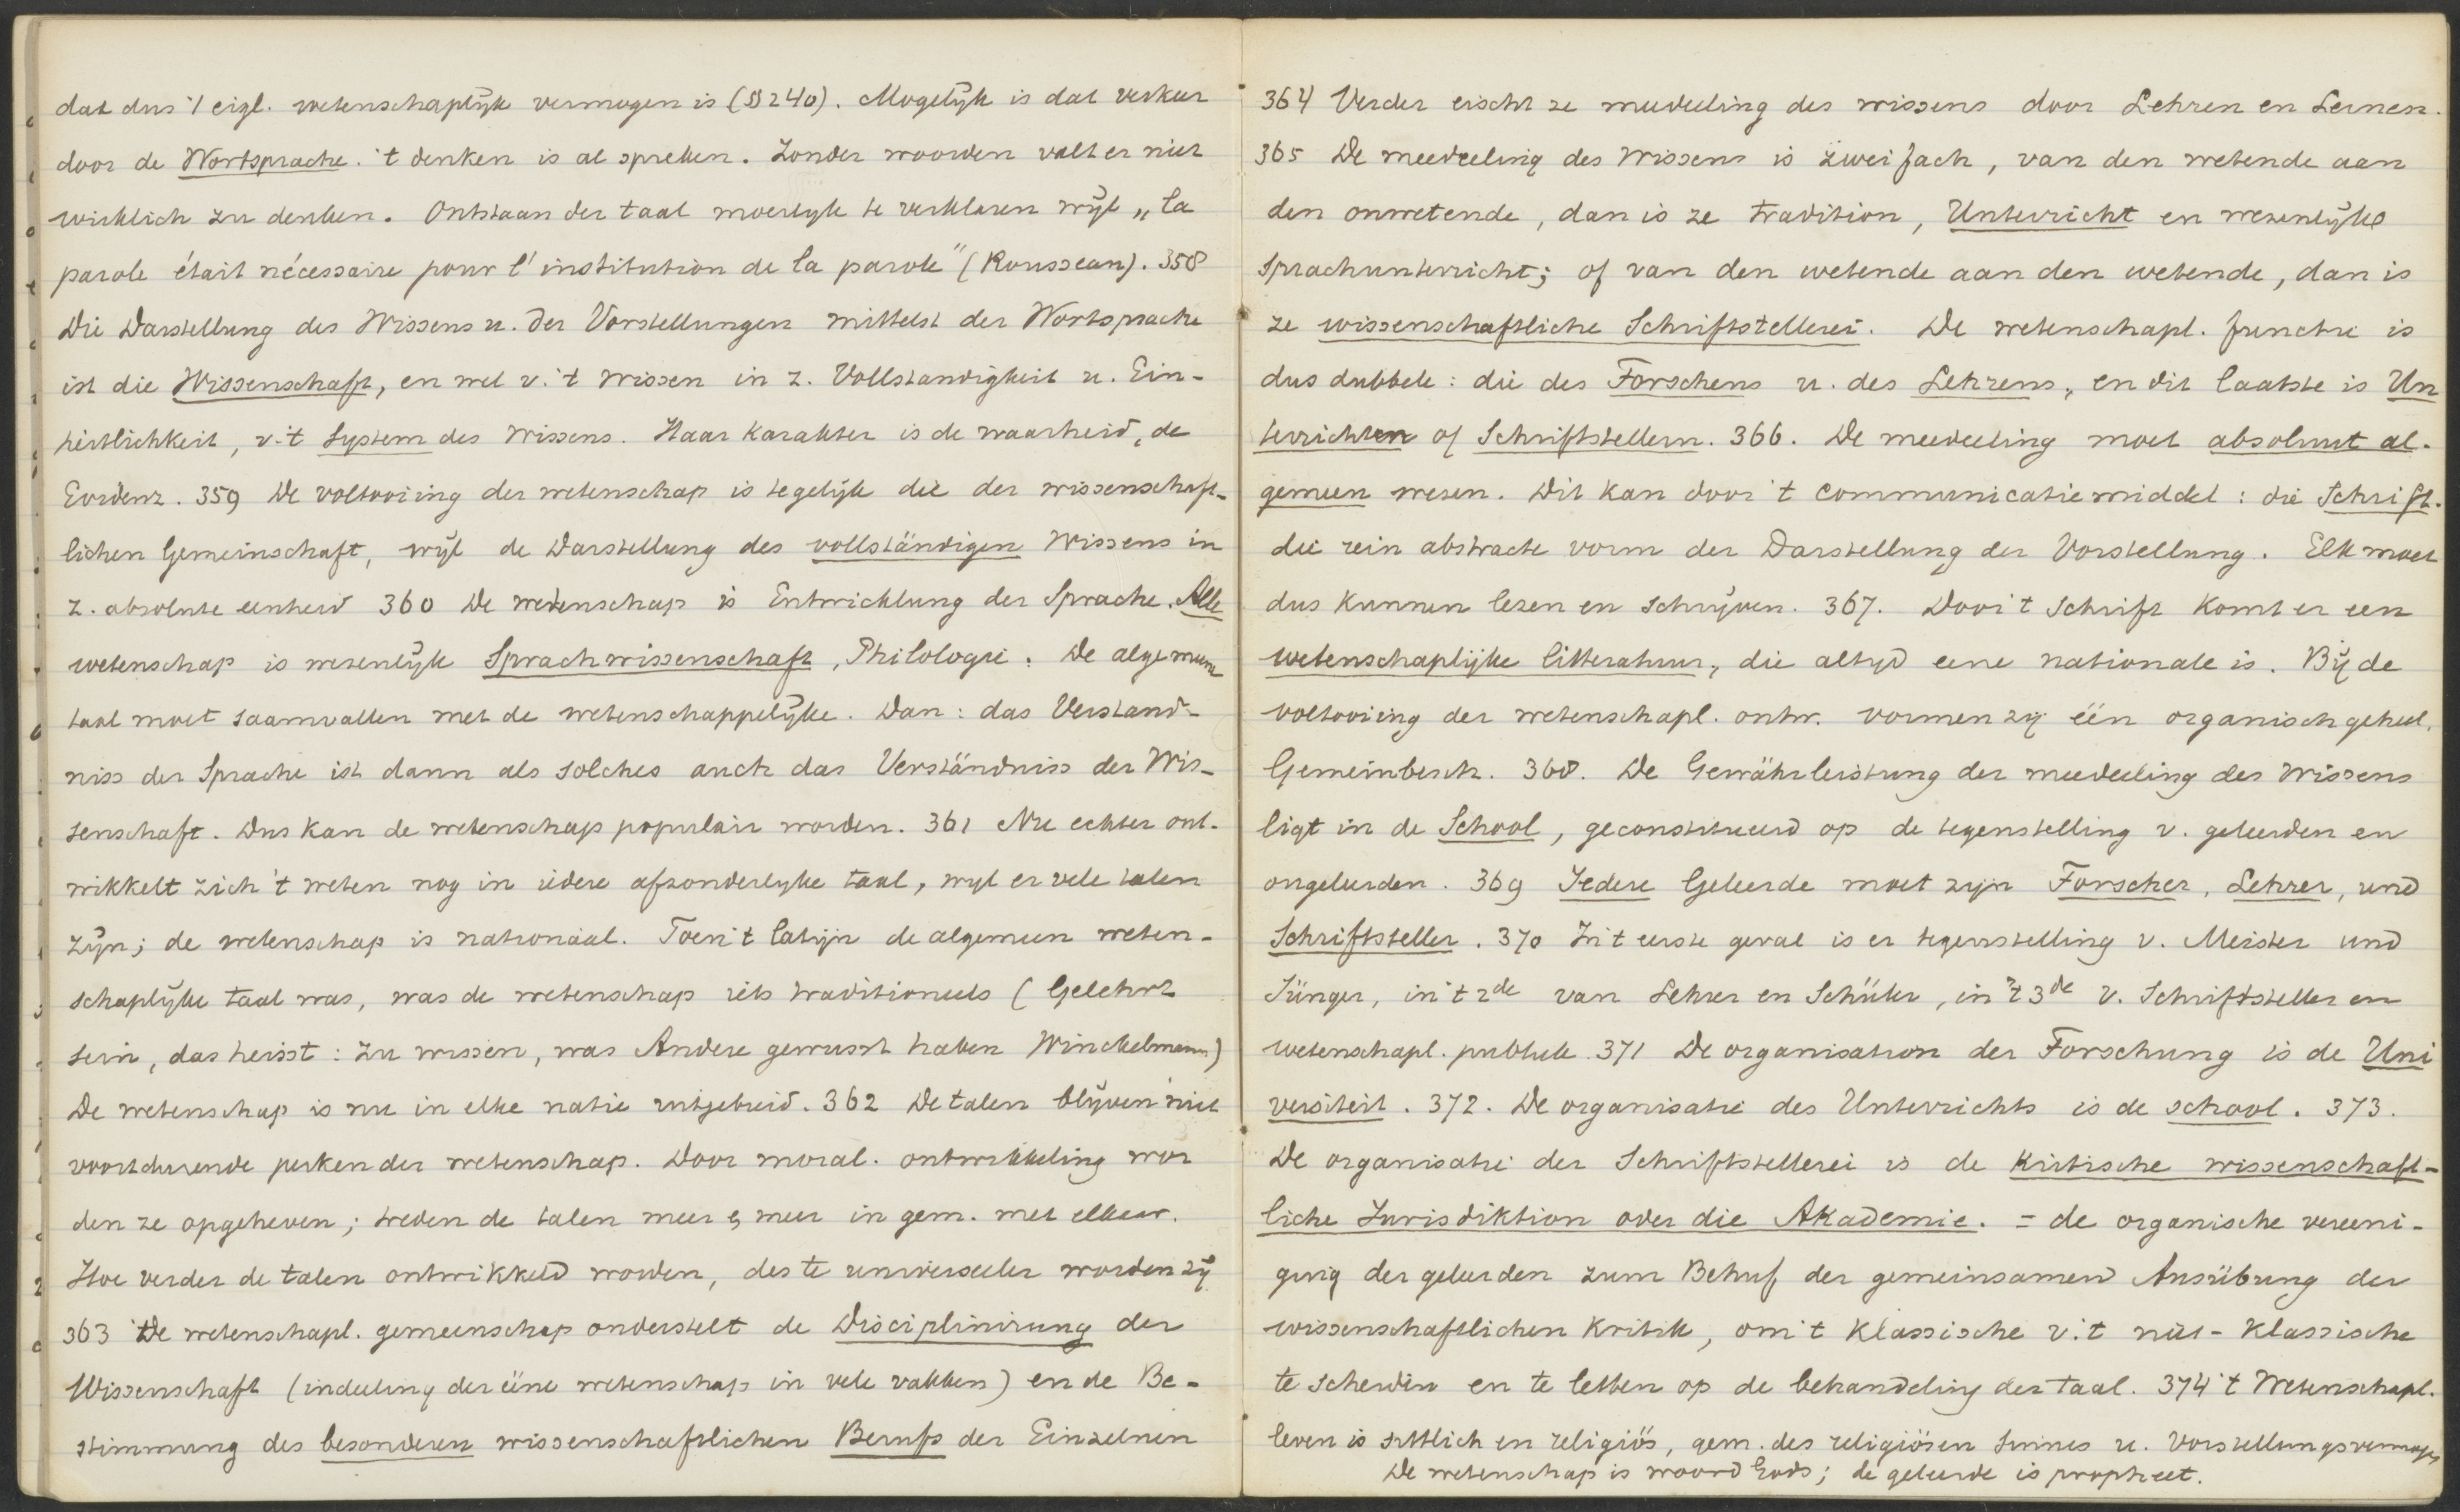 dat dus 't eigl. wetenschaplijk vermogen is (§ 240). Mogelijk is dat verkeer
door de Wortsprache. 't denken is al spreken. Zonder woorden valt er niet
wirklich zu denken. Ontstaan der taal moerlyk te verklaren wijl „la
parole était nécessaire pour l'institution de la parole" (Rousseau). 358
Die Darstellung des Wissens u. der Vorstellungen mittelst der Wortsprache
ist die Wissenschaft, en wel v. 't Wissen in z. Vollstandigkeit u. Ein-
heitlichkeit, v. 't System des Wissens. Haar karakter is de waarheid, de
Evidenz. 359 De voltooiing der wetenschap is tegelijk die der wissenschaft-
lichen Gemeinschaft, wijl de Darstellung des vollständigen Wissens in
z. absolute eenheid 360 De wetenschap is Entwicklung der Sprache. Alle
wetenschap is wezenlijk Sprachwissenschaft, Philologie. De algemeene
taal moet saamvallen met de wetenschappelijke. Dan: das Verständ-
niss der Sprache ist dann als solches auch das Verständniss der Wis-
senschaft. Dus kan de wetenschap populair worden. 361 Nu echter ont-
wikkelt zich 't weten nog in iedere afzonderlyke taal, wyl er vele talen
zijn; de wetenschap is nationaal. Toen 't latijn de algemeen weten-
schaplijke taal was, was de wetenschap iets traditioneels (Gelehrt
sein, das heisst: zu wissen, was Andere gewusst haben Winckelmann)
De wetenschap is nu in elke natie uitgebreid. 362 De talen blijven niet
voortdurende perken der wetenschap. Door moral. ontwikkeling wor
den ze opgeheven; treden de talen meer & meer in gem. met elkaar.
Hoe verder de talen ontwikkeld worden, des te universeeler worden zij
363 De wetenschapl. gemeenschap onderstelt de Disciplinirung der
Wissenschaft (indeeling der ééne wetenschap in vele vakken) en de Be-
stimmung des besonderen wissenschaftlichen Berufs der Einzelnen
364 Verder eischt ze mededeeling des wissens door Lehren en Lernen.
365 De meedeeling des Wissens is zweifach, van den wetende aan
den onwetende, dan is ze tradition, Unterricht en wezenlijke
Sprachunterricht; of van den wetende aan den wetende, dan is
ze wissenschaftliche Schriftstellerei. De wetenschapl. functie is
dus dubbele: die des Forschens u. des Lehrens, en dit laatste is Un
terrichten of Schriftstellern. 366. De meedeeling moet absoluut al-
gemeen wezen. Dit kan door 't communicatiemiddel: die Schrift.
die rein abstracte vorm der Darstellung der Vorstellung. Elk moet
dus kunnen lezen en schrijven. 367. Door 't Schrift komt er een
wetenschaplijke litteratuur, die altyd eene nationale is. Bij de
voltooiing der wetenschapl. ontw. vormen zij één organisch geheel.
Gemeinbesch. 368. De Gewährleistung der meedeeling des Wissens
ligt in de School, geconstitueerd op de tegenstelling v. geleerden en
ongeleerden. 369 Iedere Geleerde moet zijn Forscher, Lehrer, und
Schriftsteller. 370 In 't eerste geval is er tegenstelling v. Meister und
Jünger, in 't 2de van Lehrer en Schüler, in 't 3de v. Schriftsteller en
wetenschapl. publiek 371 De organisation der Forschung is de Uni
versiteit. 372. De organisatie des Unterrichts is de school. 373.
De organisatie der Schriftstellerei is de kritische wissenschaft-
liche Jurisdiktion oder die Akademie. = de organische vereeni-
ging der geleerden zum Behuf der gemeinsamen Ausübung der
wissenschaftlichen Kritik, om 't klassische v. 't niet-klassische
te scheiden en te letten op de behandeling der taal. 374 't Wetenschapl.
leven is sittlich en religiös, gem. des religiösen Sinnes u. Vorstellungsvermogens
De wetenschap is woord Gods; de geleerde is propheet.